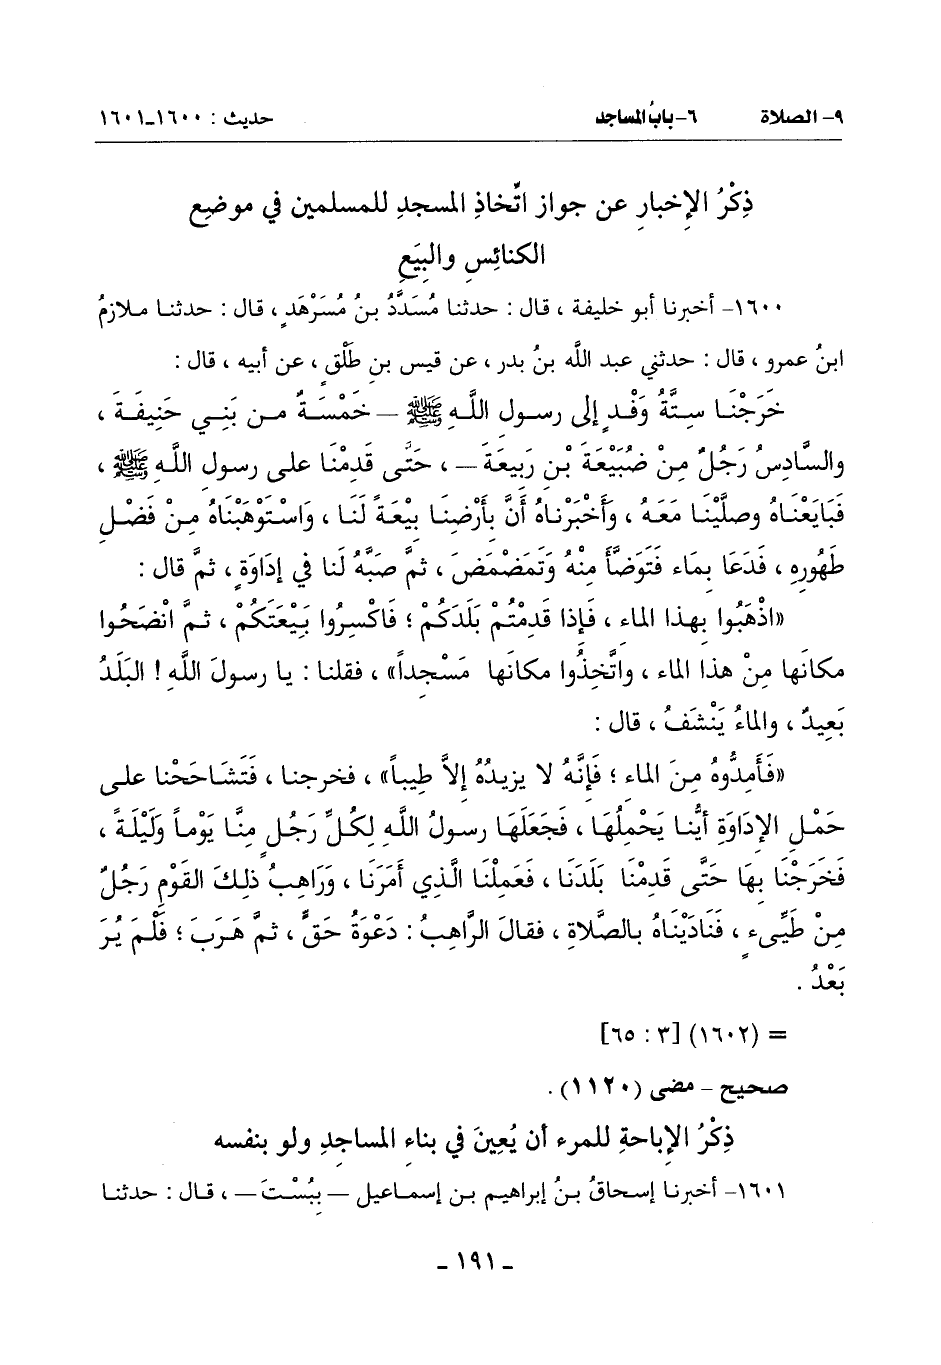 ٩- الصلاة ٦- بابُ المساجد حديث : ١٦٠٠-١٦٠١
ذِكْرُ الإخبارِ عن جواز اتِّخاذِ المسجدِ للمسلمين في موضِعِ
الكنائِسِ والبِيَعِ
١٦٠٠- أخبرنا أبو خليفة ، قال : حدثنا مُسَدَّدُ بنُ مُسَرْهَدٍ ، قال : حدثنا ملازمُ
ابنُ عمرو ، قال : حدثني عبد الله بنُ بدر ، عن قيس بنِ طَلْقٍ ، عن أبيه ، قال :
خَرَجْنَا سِتَّةُ وَفْدٍ إلى رسول اللَّهِ ﷺ – خَمْسَةٌ من بَنِي حَنِيفَةَ ،
والسَّادِسُ رَجُلٌ مِنْ ضُبَيْعَةَ بْنِ رَبِيعَةَ – ، حَتَّى قَدِمْنَا على رسولِ اللَّهِ ﷺ ،
فَبَايَعْنَاهُ وصلَّيْنَا مَعَهُ ، وَأَخْبَرْنَاهُ أَنَّ بأَرْضِنَا بِيْعَةً لَنَا ، وَاسْتَوْهَبْنَاهُ مِنْ فَضْلِ
طَهُورِهِ ، فَدَعَا بِمَاءٍ فَتَوَضَّأَ مِنْهُ وَتَمَضْمَضَ ، ثم صَبَّهُ لَنَا في إِدَاوَةٍ ، ثمَّ قال :
«اذْهَبُوا بِهذا الماءِ ، فَإذا قَدِمْتُمْ بَلَدَكُمْ ؛ فَاكْسِرُوا بَيْعَتَكُمْ ، ثمَّ انْضَحُوا
مكانَها مِنْ هذا الماءِ ، واتَّخِذُوا مكانَها مَسْجداً» ، فقلنا : يا رسولَ اللَّهِ ! البَلَدُ
بَعِيدٌ ، والماءُ يَنْشَفُ ، قال :
«فَأَمِدُّوهُ مِنَ الماءِ ؛ فَإِنَّهُ لا يزيدُهُ إلاَّ طيباً» ، فخرجنا ، فَتَشَاحَحْنا على
حَمْلِ الإِدَاوَةِ أَيُّنا يَحْمِلُهَا ، فَجَعَلَهَا رسولُ اللَّهِ لِكُلِّ رَجُلٍ مِنَّا يَوْماً وَلَيْلَةً ،
فَخَرَجْنَا بِهَا حَتَّى قَدِمْنَا بَلَدَنَا ، فَعَمِلْنَا الَّذِي أَمَرَنَا ، وَرَاهِبُ ذلِكَ القَوْمِ رَجُلٌ
مِنْ طَيِّىءٍ ، فَنَادَيْنَاهُ بالصَّلاةِ ، فقالَ الرَّاهِبُ : دَعْوَةُ حَقٍّ ، ثمَّ هَرَبَ ؛ فَلَمْ يُرَ
بَعْدُ .
= (١٦٠٢) [٣ : ٦٥]
صحيح – مضى (١١٢٠) .
ذِكْرُ الإباحةِ للمرءِ أن يُعِينَ في بناءِ المساجدِ ولو بنفسه
١٦٠١- أخبرنا إسحاقُ بنُ إبراهيم بن إسماعيل – بِبُسْتَ – ، قال : حدثنا
- ١٩١ -